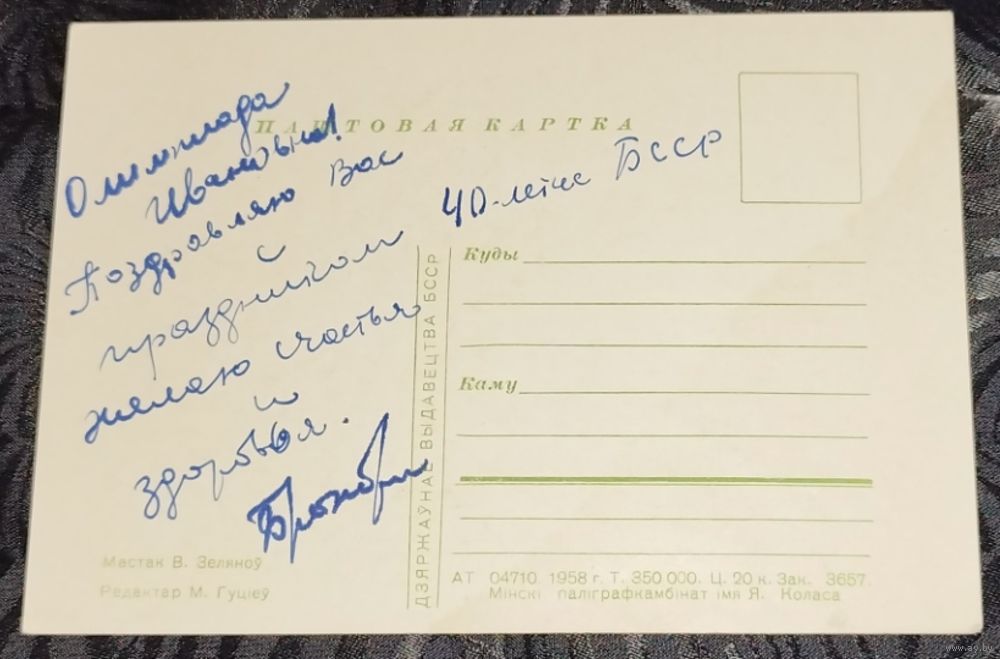 ПАШТОВАЯ КАРТКА
Олимпиада
Ивановна!
Поздравляю Вас
с
праздником 40-летие БССР
желаю счастья
и
здоровья.
Куды
Каму
ДЗЯРЖАЎНАЕ ВЫДАВЕЦТВА БССР
Мастак В. Зеляноў
Рэдактар М. Гуціеў
АТ 04710 1958 г. Т. 350 000. Ц. 20 к. Зак. 3657.
Мінскі паліграфкамбінат імя Я. Коласа
www.ay.by